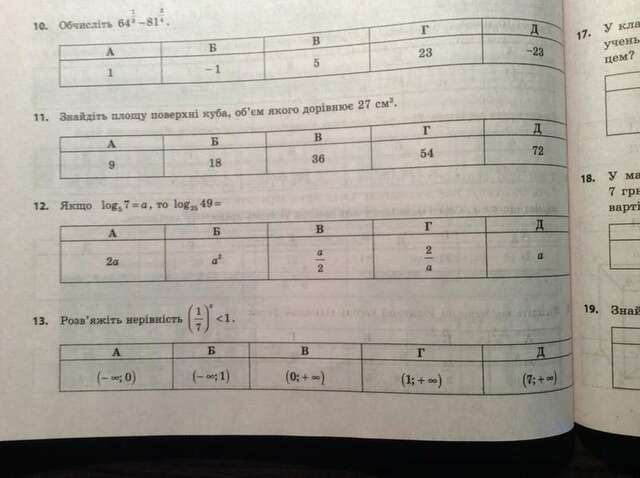 10. Обчисліть 64^{1/3} − 81^{3/4}.
А Б В Г Д
1 −1 5 23 −23
11. Знайдіть площу поверхні куба, об'єм якого дорівнює 27 см³.
А Б В Г Д
9 18 36 54 72
12. Якщо log₅ 7 = a, то log₂₅ 49 =
А Б В Г Д
2a a² a/2 2/a a
13. Розв'яжіть нерівність (1/7)ˣ < 1.
А Б В Г Д
(− ∞; 0) (− ∞; 1) (0; + ∞) (1; + ∞) (7; + ∞)
17. У кла
учень
цем?
18. У ма
7 гри
варті
19. Знай